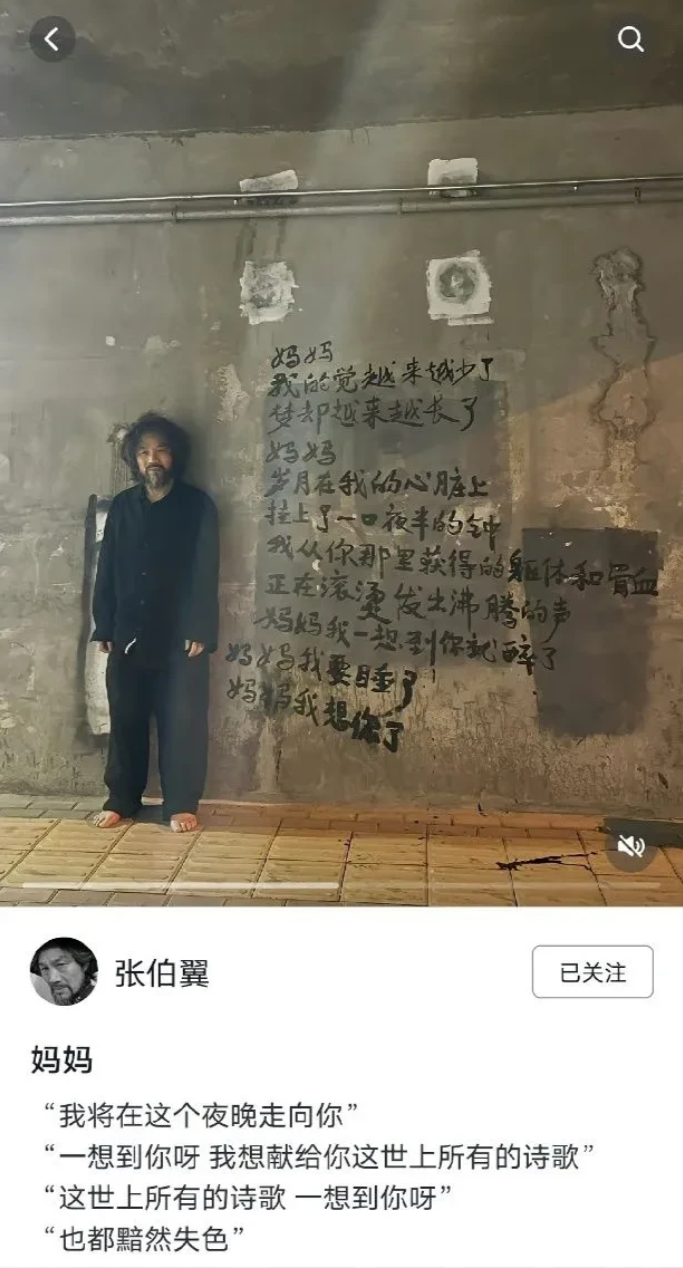 妈妈
我的觉越来越少了
梦却越来越长了
妈妈
岁月在我的心脏上
挂上了一口夜半的钟
我从你那里获得的躯体和骨血
正在滚烫发出沸腾的声
妈妈我一想到你就醉了
妈妈我要睡了
妈妈我想你了
张伯翼
已关注
妈妈
“我将在这个夜晚走向你”
“一想到你呀 我想献给你这世上所有的诗歌”
“这世上所有的诗歌 一想到你呀”
“也都黯然失色”